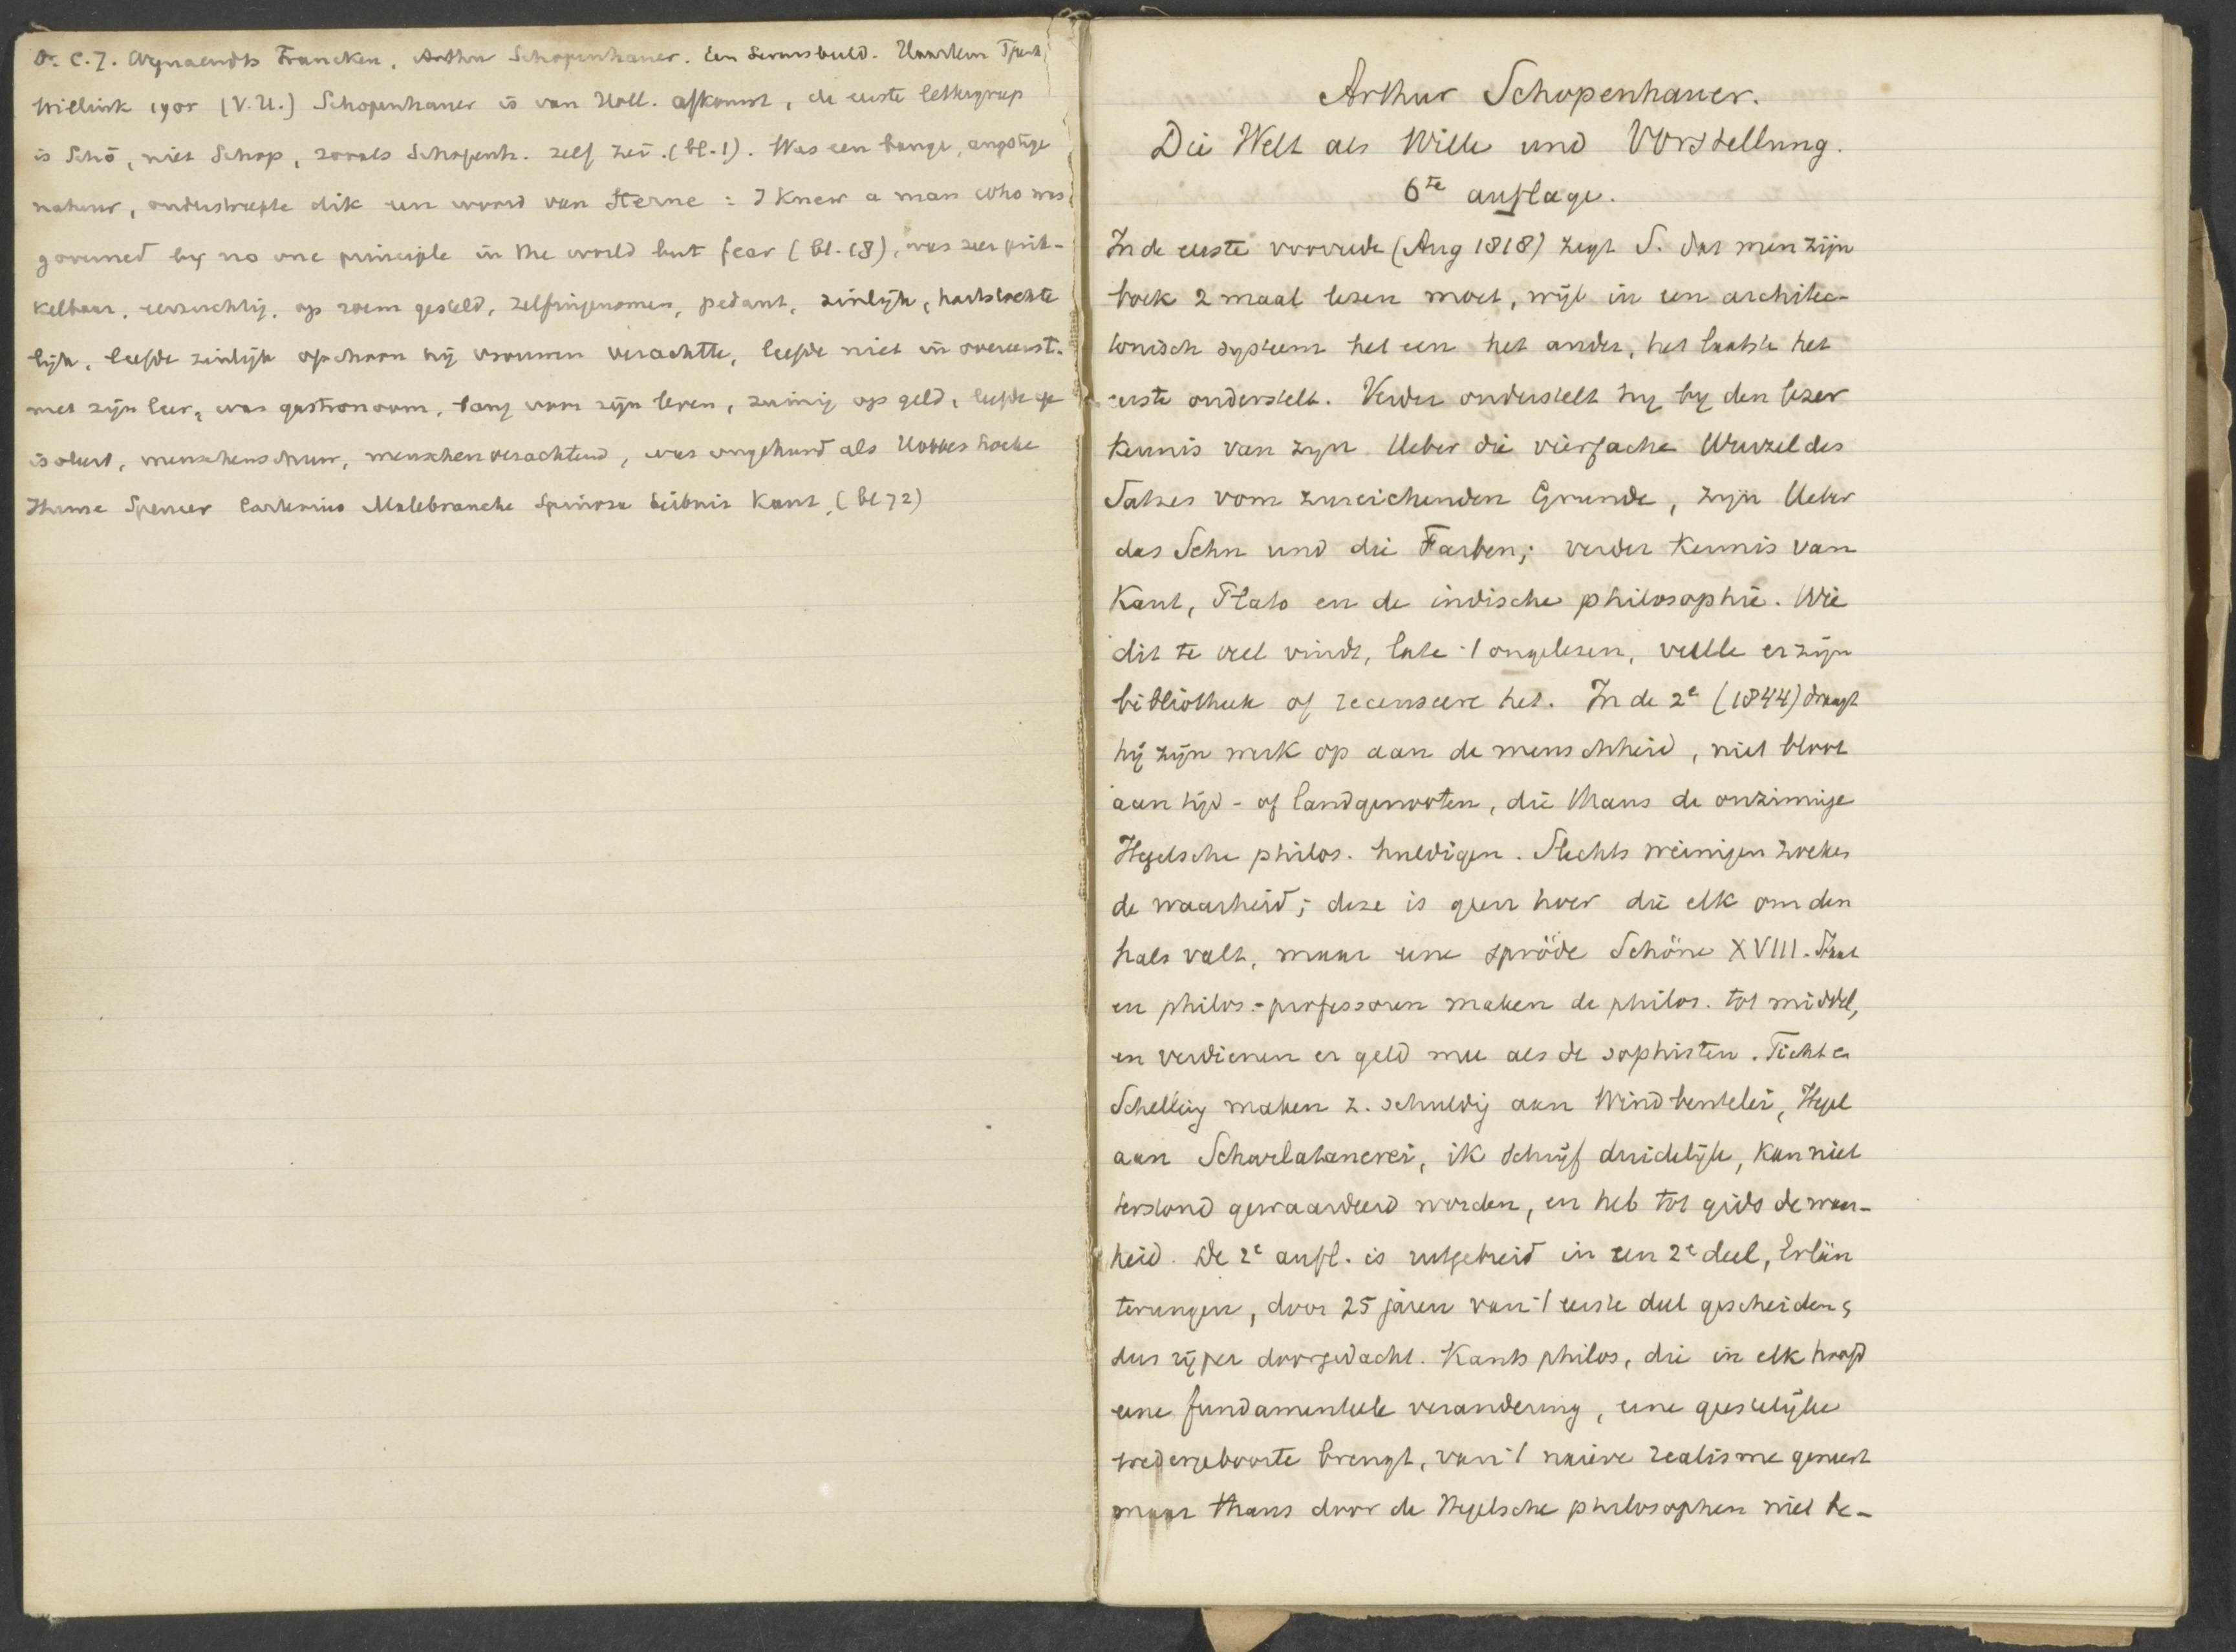 Dr. C.J. Wynaendts Francken, Arthur Schopenhauer. Een Levensbeeld. Haarlem Tjeenk
Willink 1905 (V.U.) Schopenhauer is van Holl. afkomst, de eerste lettergreep
is Schō, niet Schop, zooals Schopenh. zelf zei. (bl. 1). Was een bange, angstige
natuur, onderstreepte dik een woord van Sterne: I knew a man who was
governed by no one principle in the world but fear (bl. 18), was zeer prik-
kelbaar, eerzuchtig, op roem gesteld, zelfingenomen, pedant, zinlijk, hartstochte
lijk, leefde zinlijk ofschoon hij vrouwen verachtte, leefde niet in overeenst.
met zijn leer, was gastronoom, bang voor zijn leven, zuinig op geld, leefde ge
isoleerd, menschenschuw, menschenverachtend, was ongehuwd als Hobbes Locke
Hume Spencer Cartesius Malebranche Spinoza Leibniz Kant. (bl 72)
Arthur Schopenhauer.
Die Welt als Wille und Vorstellung.
6te auflage.
In de eerste voorrede (Aug 1818) zegt S. dat men zijn
boek 2 maal lezen moet, wijl in een architec-
tonisch systeem het een het ander, het laatste het
eerste onderstelt. Verder onderstelt hij bij den lezer
kennis van zijn Ueber die vierfache Wurzel des
Satzes vom zureichenden Grunde, zijn Ueber
das Sehn und die Farben; verder kennis van
Kant, Plato en de indische philosophie. Wie
dit te veel vindt, late 't ongelezen, vulle er zijn
bibliotheek of recenseere het. In de 2e (1844) draagt
hij zijn werk op aan de menschheid, niet bloot
aan tijd- of landgenooten, die thans de onzinnige
Hegelsche philos. huldigen. Slechts weinigen zoeken
de waarheid; deze is geen hoer die elk om den
hals valt, maar eene spröde Schöne XVIII. Staat
en philos.-professoren maken de philos. tot middel,
en verdienen er geld mee als de sophisten. Fichte en
Schelling maken z. schuldig aan Windbeutelei, Hegel
aan Scharlatanerei, ik schrijf duidelijk, kan niet
terstond gewaardeerd worden, en heb tot gids de waar-
heid. De 2e aufl. is uitgebreid in een 2e deel, Erläu
terungen, door 25 jaren van 't eerste deel gescheiden,
dus rijper doorgedacht. Kants philos, die in elk hoofd
eene fundamenteele verandering, eene geestelijke
wedergeboorte brengt, van 't naïeve realisme geneest
maar thans door de Hegelsche philosophen niet be-